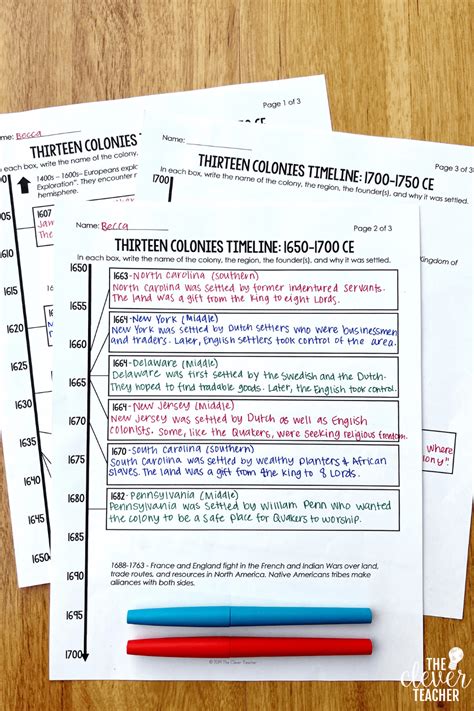 Page 1 of 3
Name: Becca
THIRTEEN COLONIES TIMELINE:
CE
In each box, write the name of the colony,
1400s - 1600s- Europeans explo
Exploration". They encounter
1607
Jam
The
1610
1615
1620
1625
1630
1635
1640
1645
1650
Page 3 of 3
Name:
THIRTEEN COLONIES TIMELINE: 1700-1750 CE
In each box, write the name of the colony, the region, the founder(s), and why it was settled.
1700
Kingdom of
where
ony".
Page 2 of 3
Name: Becca
THIRTEEN COLONIES TIMELINE: 1650-1700 CE
In each box, write the name of the colony, the region, the founder(s), and why it was settled.
1650
1663-North Carolina (southern)
North Carolina was settled by former indentured servants.
The land was a gift from the king to eight Lords.
1655
1664-New York (Middle)
New York was settled by Dutch settlers who were businessmen
and traders. Later, English settlers took control of the area.
1660
1664-Delaware (Middle)
Delaware was first settled by the Swedish and the Dutch.
They hoped to find tradable goods. Later, the English took control.
1665
1664-New Jersey (Middle)
New Jersey was settled by Dutch as well as English
colonists. Some, like the Quakers, were seeking religious freedom.
1670
1670-South Carolina (southern)
South Carolina was settled by wealthy planters & African
slaves. The land was a gift from the king to 8 Lords.
1675
1682-Pennsylvania (Middle)
Pennsylvania was settled by William Penn who wanted
the colony to be a safe place for Quakers to worship.
1680
1685
1688-1763 - France and England fight in the French and Indian Wars over land,
trade routes, and resources in North America. Native Americans tribes make
alliances with both sides.
1690
1695
1700
© 2019 The Clever Teacher
THE
clever
TEACHER